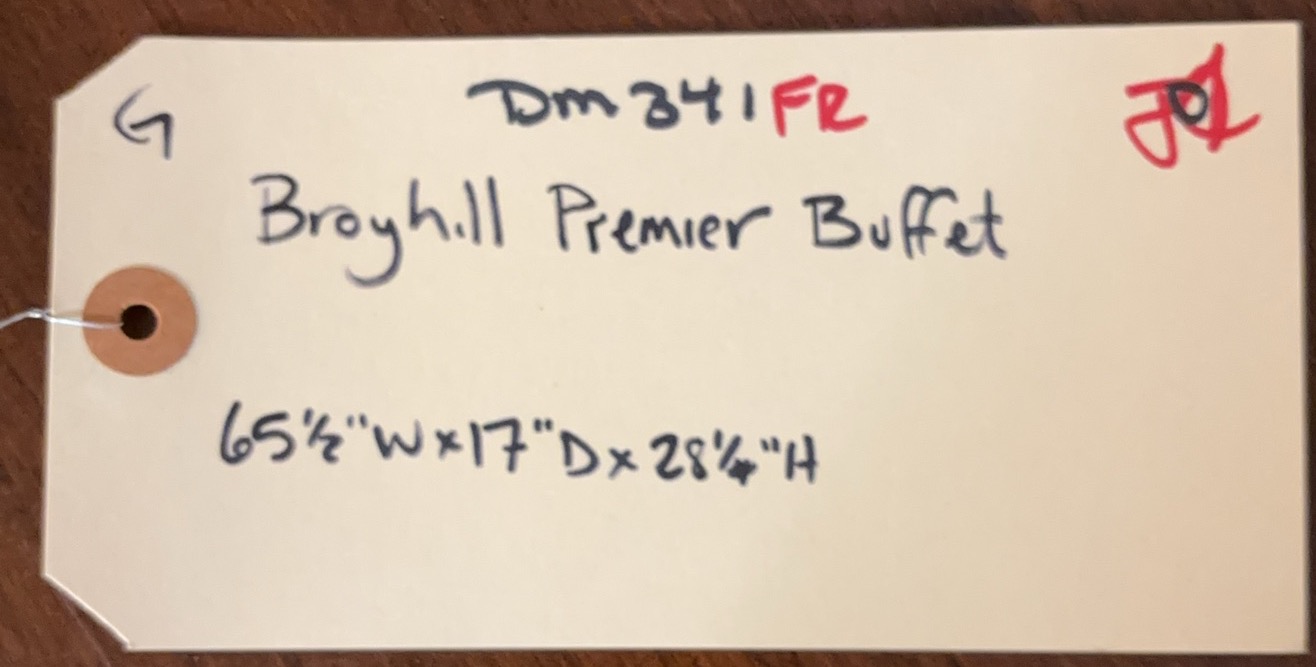 G Dm341FR
Broyhill Premier Buffet
65½"W x 17"D x 28¼"H